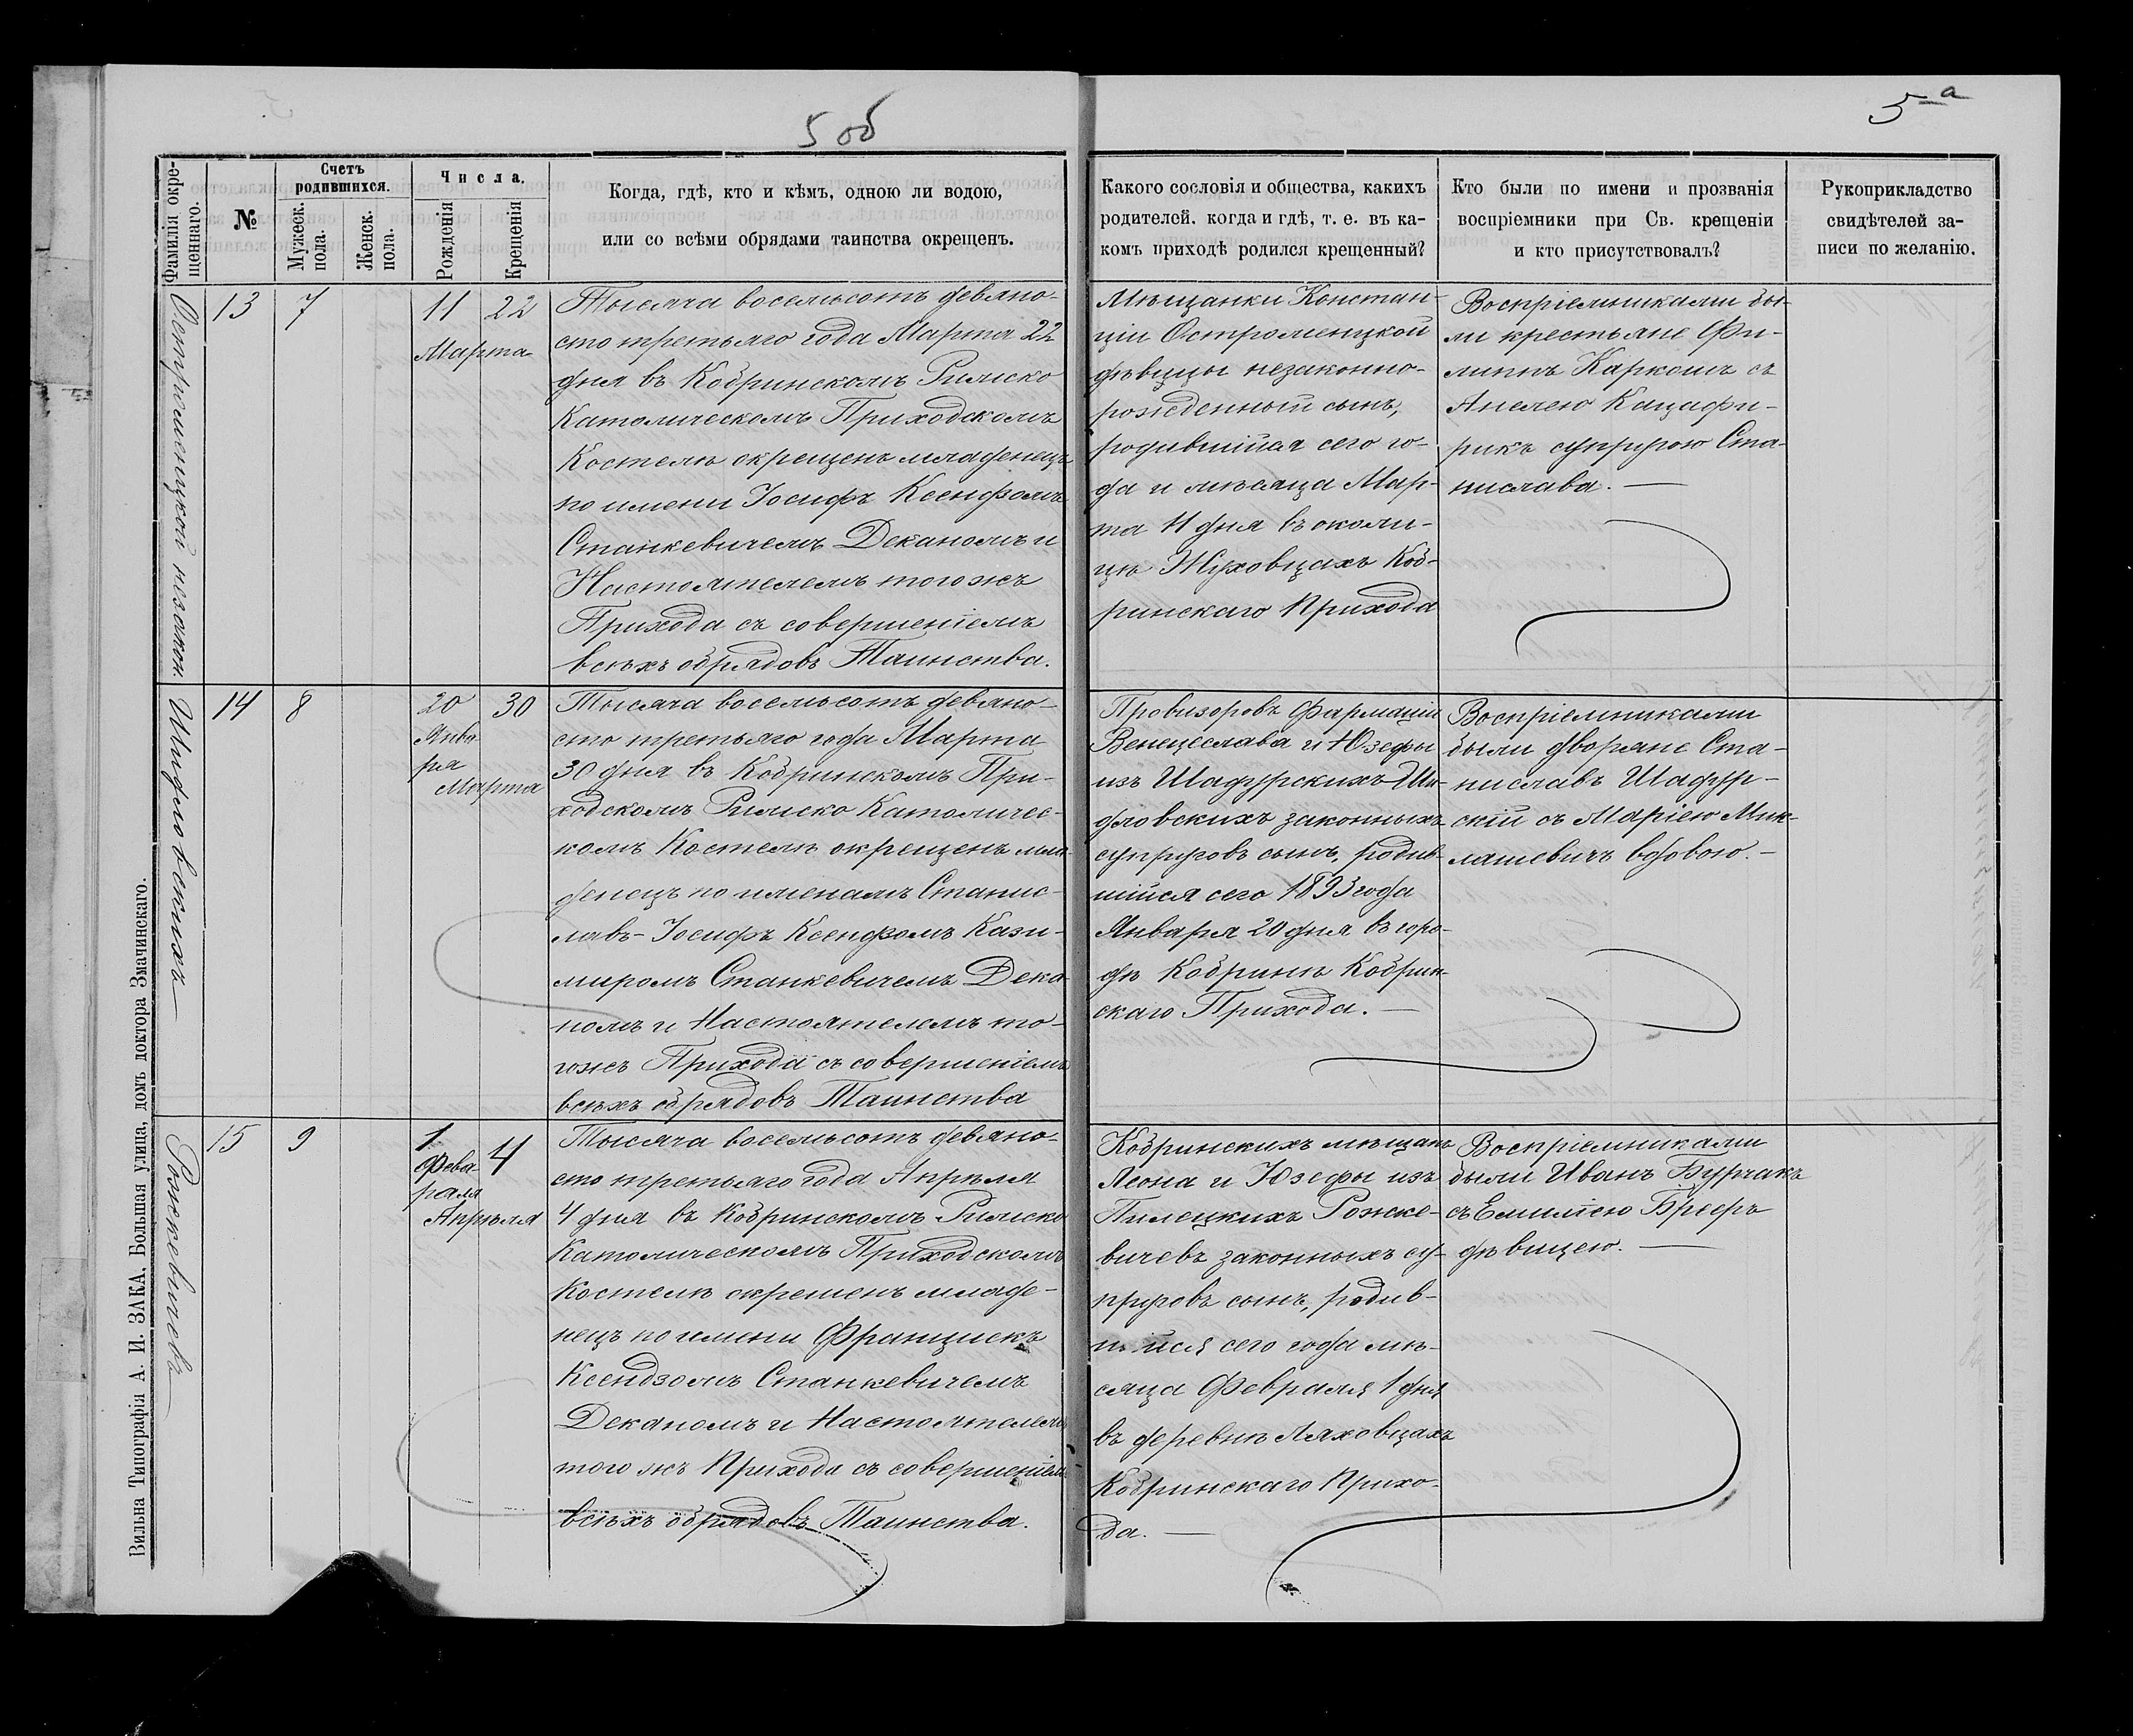 5 об
5 а
Фамилія окрещеннаго.
№
Счетъ родившихся.
Мужеск. пола.
Женск. пола.
Числа.
Рожденія
Крещенія
Когда, гдѣ, кто и кѣмъ, одною ли водою,
или со всѣми обрядами таинства окрещенъ.
Какого сословія и общества, какихъ
родителей. когда и гдѣ, т. е. въ ка-
комъ приходѣ родился крещенный?
Кто были по имени и прозванія
воспріемники при Св. крещеніи
и кто присутствовалъ?
Рукоприкладство
свидѣтелей за-
писи по желанію.
Остроменцкой незакон.
13
7
11 22
Марта
Тысяча восемьсотъ девяно-
сто третьяго года Марта 22
дня въ Кобринскомъ Римско
Католическомъ Приходскомъ
Костелѣ окрещенъ младенецъ
по имени Іосифъ Ксендзомъ
Станкевичемъ Деканомъ и
Настоятелемъ того жъ
Прихода съ совершеніемъ
всѣхъ обрядовъ Таинства.
Мѣщанки Констан-
ціи Остроменцкой
дѣвицы незаконно-
рожденный сынъ,
родившійся сего го-
да и мѣсяца Мар-
та 11 дня въ околи-
цѣ Жуховцахъ Коб-
ринскаго Прихода
Воспріемниками бы-
ли крестьяне Фи-
липпъ Каркошъ съ
Анелею Кацафи-
рикъ супругою Ста-
нислава.
Шидловскихъ
14
8
20 30
Янва
ря
Марта
Тысяча восемьсотъ девяно-
сто третьяго года Марта
30 дня въ Кобринскомъ При-
ходскомъ Римско Католичес-
комъ Костелѣ окрещенъ мла-
денецъ по именамъ Станис-
лавъ-Іосифъ Ксендзомъ Кази-
миромъ Станкевичемъ Дека-
номъ и Настоятелемъ то-
гожъ Прихода съ совершеніемъ
всѣхъ обрядовъ Таинства
Провизоровъ Фармаціи
Венецеслава и Юзефы
изъ Шадурскихъ Ши-
дловскихъ законныхъ
супруговъ сынъ, родив-
шійся сего 1893 года
Января 20 дня въ горо-
дѣ Кобринѣ Кобрин-
скаго Прихода.
Воспріемниками
были дворяне Ста-
ниславъ Шадур-
скій съ Маріею Мик-
лашевичъ вдовою.
Рожкевичевъ
15
9
1 4
Февра-
раля
Апрѣля
Тысяча восемьсотъ девяно-
сто третьяго года Апрѣля
4 дня въ Кобринскомъ Римско
Католическомъ Приходскомъ
Костелѣ окрещенъ младе-
нецъ по имени Францискъ
Ксендзомъ Станкевичемъ
Деканомъ и Настоятелемъ
того жъ Прихода съ совершеніемъ
всѣхъ обрядовъ Таинства.
Кобринскихъ мѣщанъ
Леона и Юзефы изъ
Пилецкихъ Рожке-
вичевъ законныхъ су-
пруговъ сынъ, родив-
шійся сего года мѣ-
сяца Февраля 1 дня
въ деревнѣ Ляховцахъ
Кобринскаго Прихо-
да.
Воспріемниками
были Иванъ Бурчакъ
съ Емиліею Брееръ
дѣвицею.
Вильна Типографія А. И. ЗАКА, Большая улица, домъ доктора Змачинскаго.